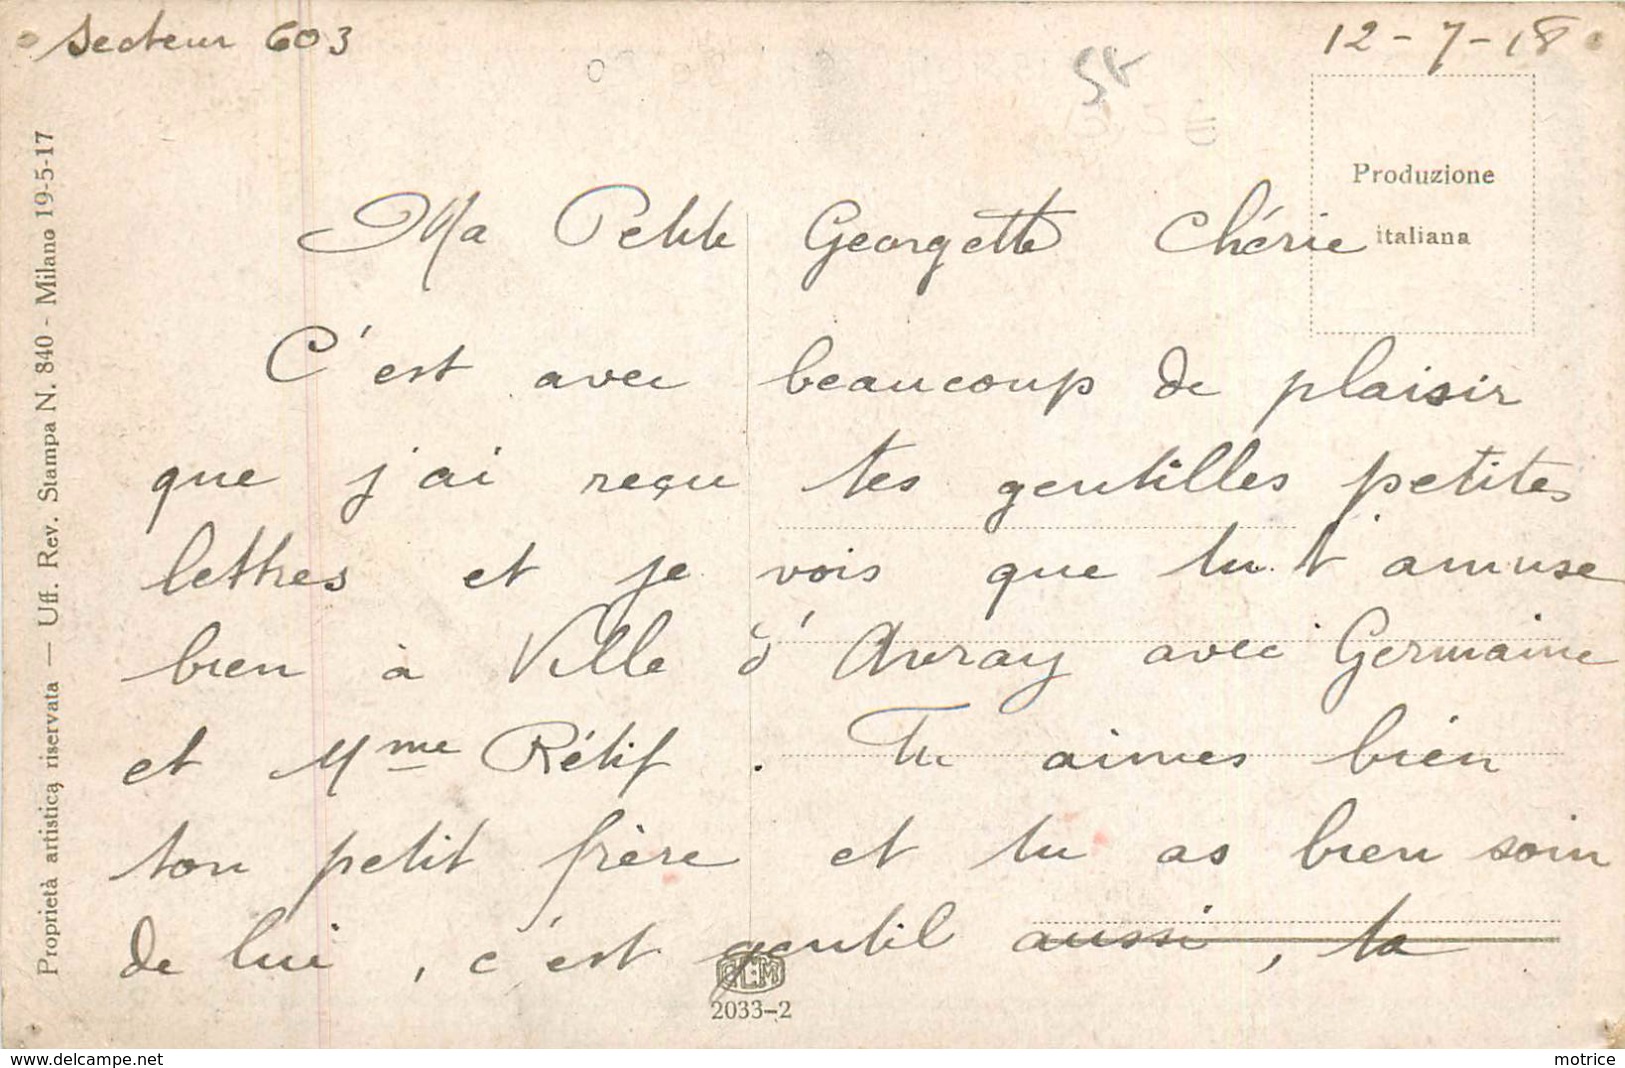 Secteur 603
12-7-18
Produzione
italiana
Ma Petite Georgette Chérie
C'est avec beaucoup de plaisir
que j'ai reçu tes gentilles petites
lettres et je vois que tu t'amuse
bien à Ville d'Avray avec Germaine
et Mme Rétif. Tu aimes bien
ton petit frère et tu as bien soin
de lui, c'est gentil aussi, ta
2033-2
Proprietà artistica riservata — Uff. Rev. Stampa N. 840 - Milano 19-5-17
www.delcampe.net
motrice